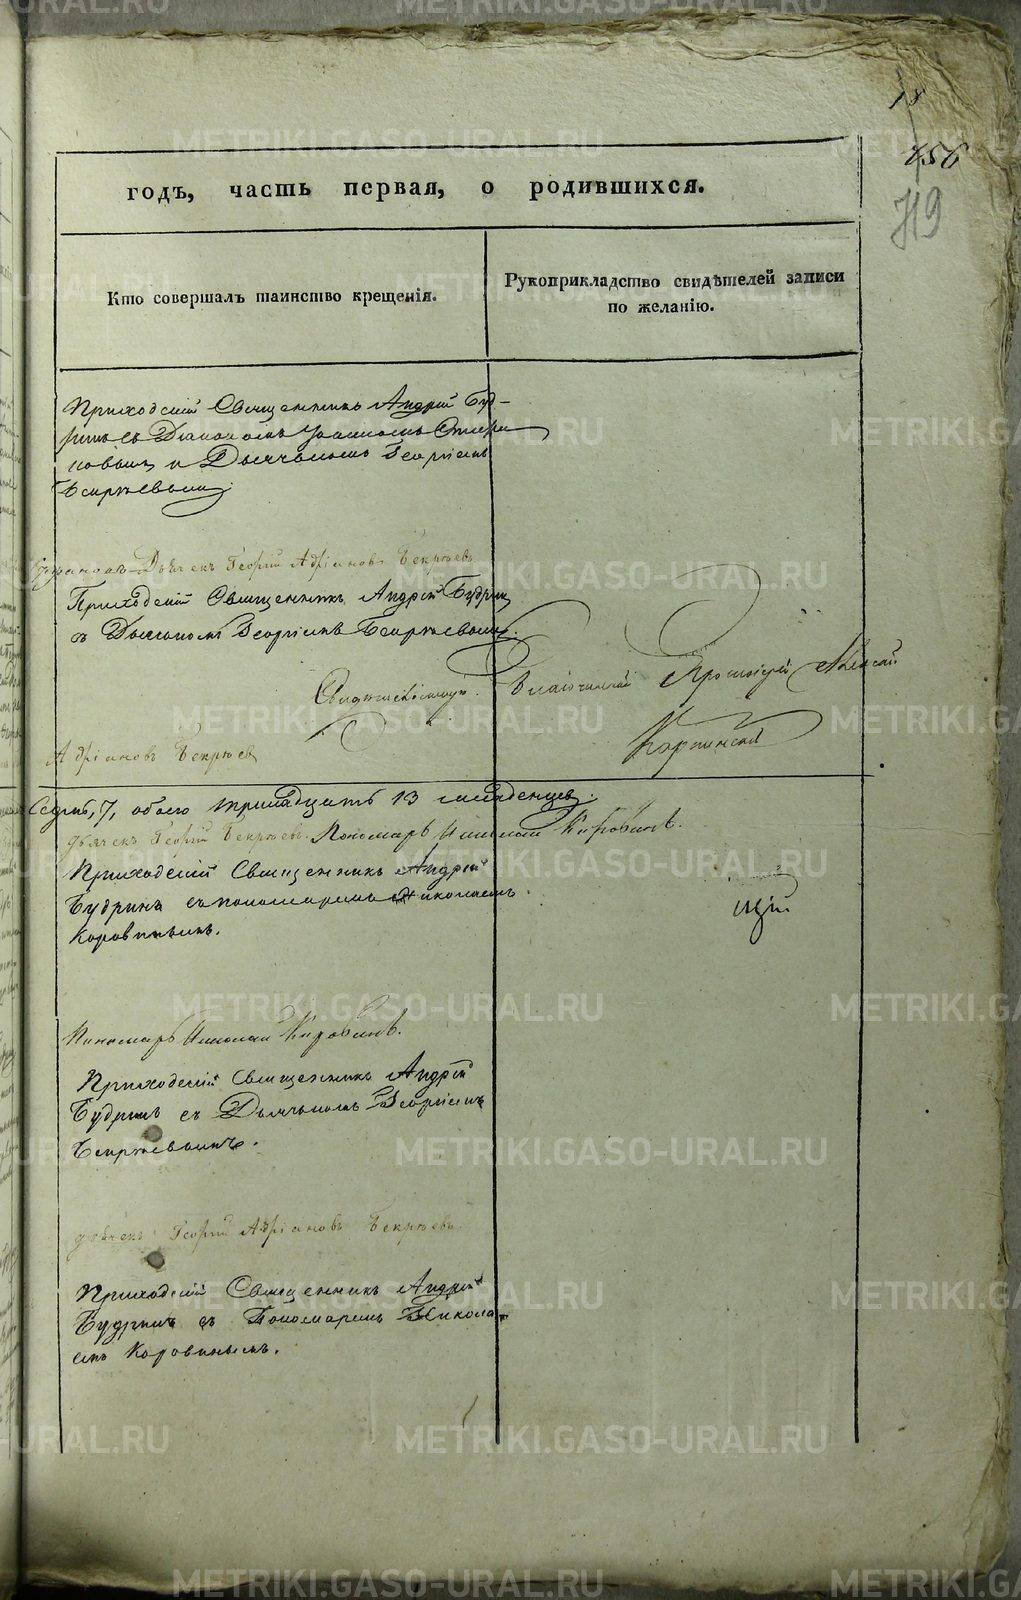 18
456
719
годъ, часть первая, о родившихся.
Кто совершалъ таинство крещенія.
Рукоприкладство свидѣтелей записи
по желанію.
Приходскій Священникъ Андрей Буд-
ринъ съ Діакономъ Іоанномъ
и Дьячкомъ Георгіемъ
Бекрѣевымъ.
Дьячекъ Георгій Адріановъ Бекрѣевъ
Приходскій Священникъ Андрей Будринъ
съ Дьячкомъ Георгіемъ Бекрѣевымъ.
Свидѣтельствую. Благочинный Протоіерей Алексѣй
Карпинскій
Адріановъ Бекрѣевъ
Седмь, 7, обоего тринадцать 13 младенцевъ.
дьячекъ Георгій Бекрѣевъ. Пономарь Николай Коровинъ.
Приходскій Священникъ Андрей
Будринъ съ пономаремъ Николаемъ
Коровинымъ.
Пономарь Николай Коровинъ.
Приходскій Священникъ Андрей
Будринъ съ Дьячкомъ Георгіемъ
Бекрѣевымъ.
дьячекъ Георгій Адріановъ Бекрѣевъ
Приходскій Священникъ Андрей
Будринъ съ Пономаремъ Никола-
емъ Коровинымъ.
METRIKI.GASO-URAL.RU